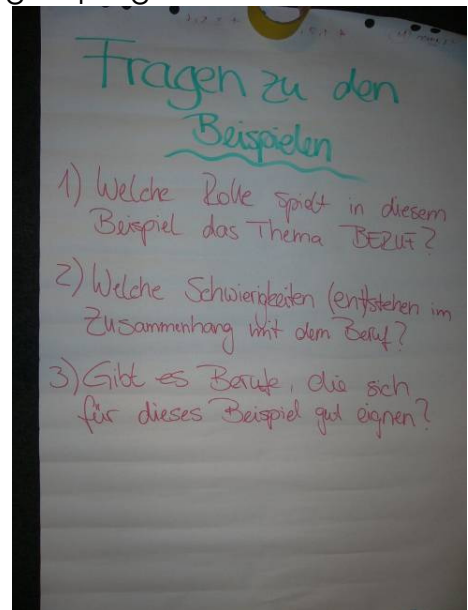 Fragen zu den
Beispielen
1) Welche Rolle spielt in diesem
Beispiel das Thema BERUF?
2) Welche Schwierigkeiten (ent)stehen im
Zusammenhang mit dem Beruf?
3) Gibt es Berufe, die sich
für dieses Beispiel gut eignen?